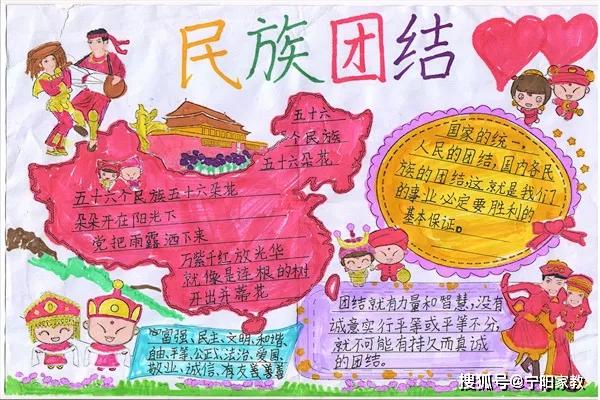 民族团结
五十六
个民族
五十六朵花
五十六个民族五十六朵花
朵朵开在阳光下
党把雨露洒下来
万紫千红放光华
就像是连根的树
开出并蒂花
国家的统一
人民的团结、国内各民
族的团结,这就是我们
的事业必定要胜利的
基本保证。
富强、民主、文明、和谐、
自由、平等、公正、法治、爱国、
敬业、诚信、有友善善善
团结就有力量和智慧,没有
诚意实行平等或平等不分,
就不可能有持久而真诚
的团结。
搜狐号@宁阳家教